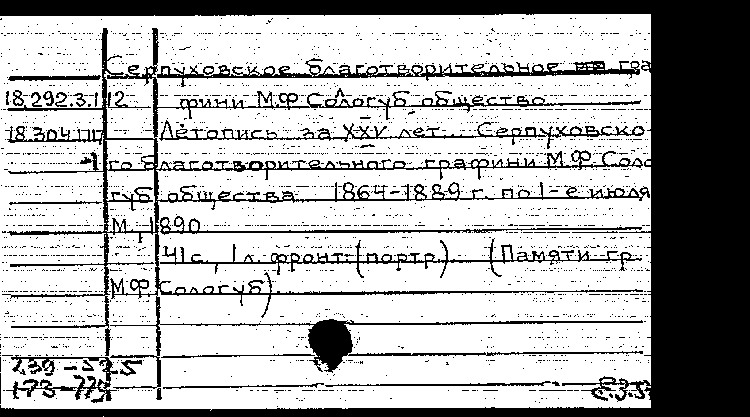 Серпуховское благотворительное гра
18.292.3.112 фини М.Ф. Сологуб общество
18.304.1.117 Летопись за XXV лет. Серпуховско-
го благотворительного графини М.Ф. Соло
губ общества 1864-1889 г. по 1-е июля
М., 1890
41 с., 1 л. фронт. (портр.). (Памяти гр.
М.Ф. Сологуб)
239-525
173-779